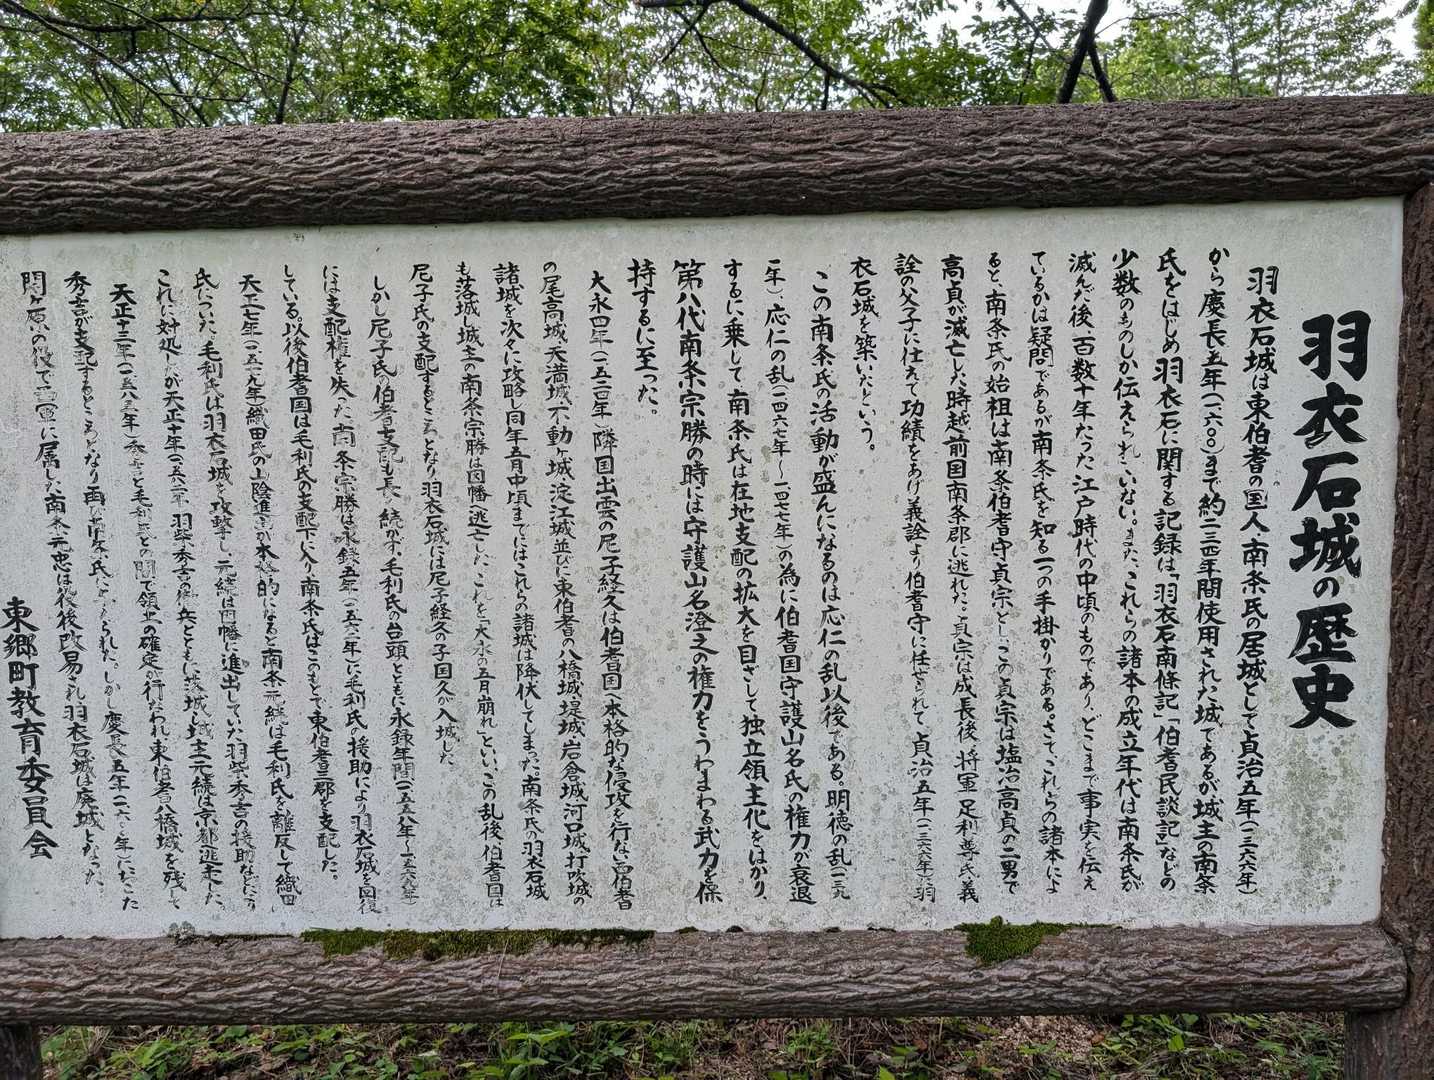 羽衣石城の歴史
羽衣石城は東伯耆の国人・南条氏の居城として貞治五年(一三六六年)
から慶長五年(一六〇〇)まで約二三四年間使用された城であるが城主の南条
氏をはじめ羽衣石に関する記録は「羽衣石南條記」「伯耆民談記」などの
少数のものしか伝えられていない。また、これらの諸本の成立年代は南条氏が
滅んだ後、百数十年たった江戸時代の中頃のものであり、どこまで事実を伝え
ているかは疑問であるが南条氏を知る一つの手掛かりである。さて、これらの諸本によ
ると、南条氏の始祖は南条伯耆守貞宗とし、この貞宗は塩冶高貞の二男で
高貞が滅亡した時越前国南条郡に逃れた。貞宗は成長後、将軍足利尊氏・義
詮の父子に仕えて功績をあげ義詮より伯耆守に任ぜられて貞治五年(一三六六年)に羽
衣石城を築いたという。
この南条氏の活動が盛んになるのは応仁の乱以後である。明徳の乱(一三九
一年)、応仁の乱(一四六七年～一四七七年)の為に伯耆国守護山名氏の権力が衰退
するに乗して南条氏は在地支配の拡大を目ざして独立領主化をはかり、
第八代南条宗勝の時には守護山名澄之の権力をうわまわる武力を保
持するに至った。
大永四年(一五二〇年)隣国出雲の尼子経久は伯耆国へ本格的な侵攻を行ない西伯耆
の尾高城、天満城、不動ヶ城、淀江城並びに東伯耆の八橋城、堤城、岩倉城、河口城、打吹城の
諸城を次々に攻略し同年五月中頃までにはこれらの諸城は降伏してしまった。南条氏の羽衣石城
も落城し城主の南条宗勝は因幡へ逃亡した。これを「大永の五月崩れ」といい、この乱後、伯耆国は
尼子氏の支配するところとなり羽衣石城には尼子経久の子国久が入城した。
しかし尼子氏の伯耆支配も長く続かず、毛利氏の台頭とともに永録年間(一五五八年～一五六九年)
には支配権を失った。南条宗勝は永録五年(一五六二年)に毛利氏の援助により羽衣石城を回復
している。以後伯耆国は毛利氏の支配下に入り南条氏はこのもとで東伯耆三郡を支配した。
天正七年(一五七九年)織田氏の山陰進出が本格的になると南条元続は毛利氏を離反して織田
氏についた。毛利氏は羽衣石城を攻撃し、元続は因幡に進出していた羽柴秀吉の援助などにより
これに対処したが天正十年(一五八二年)羽柴秀吉の撤兵とともに落城し城主元続は京都へ逃走した。
天正十三年(一五八五年)秀吉と毛利氏との間で領土の確定が行なわれ東伯耆は八橋城を残して
秀吉が支配するところとなり再び南条氏に与えられた。しかし慶長五年(一六〇〇年)におこった
関ヶ原の役で西軍に属した南条元忠は役後改易され羽衣石城は廃城となった。
東郷町教育委員会